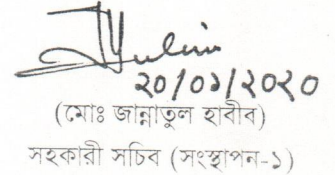 ২০/০১/২০২০
(মোঃ জান্নাতুল হাবীব)
সহকারী সচিব (সংস্থাপন-১)